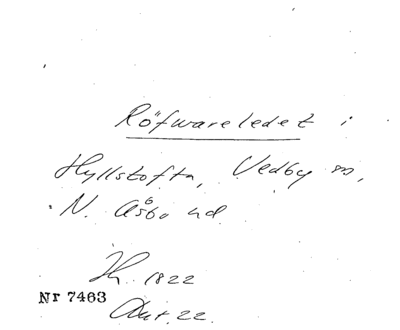 Röfwareledet i
Hyllstofta, Vedby sn,
N. Åsbo hd
Jh. 1822
Nr 7463
Akt. 22.